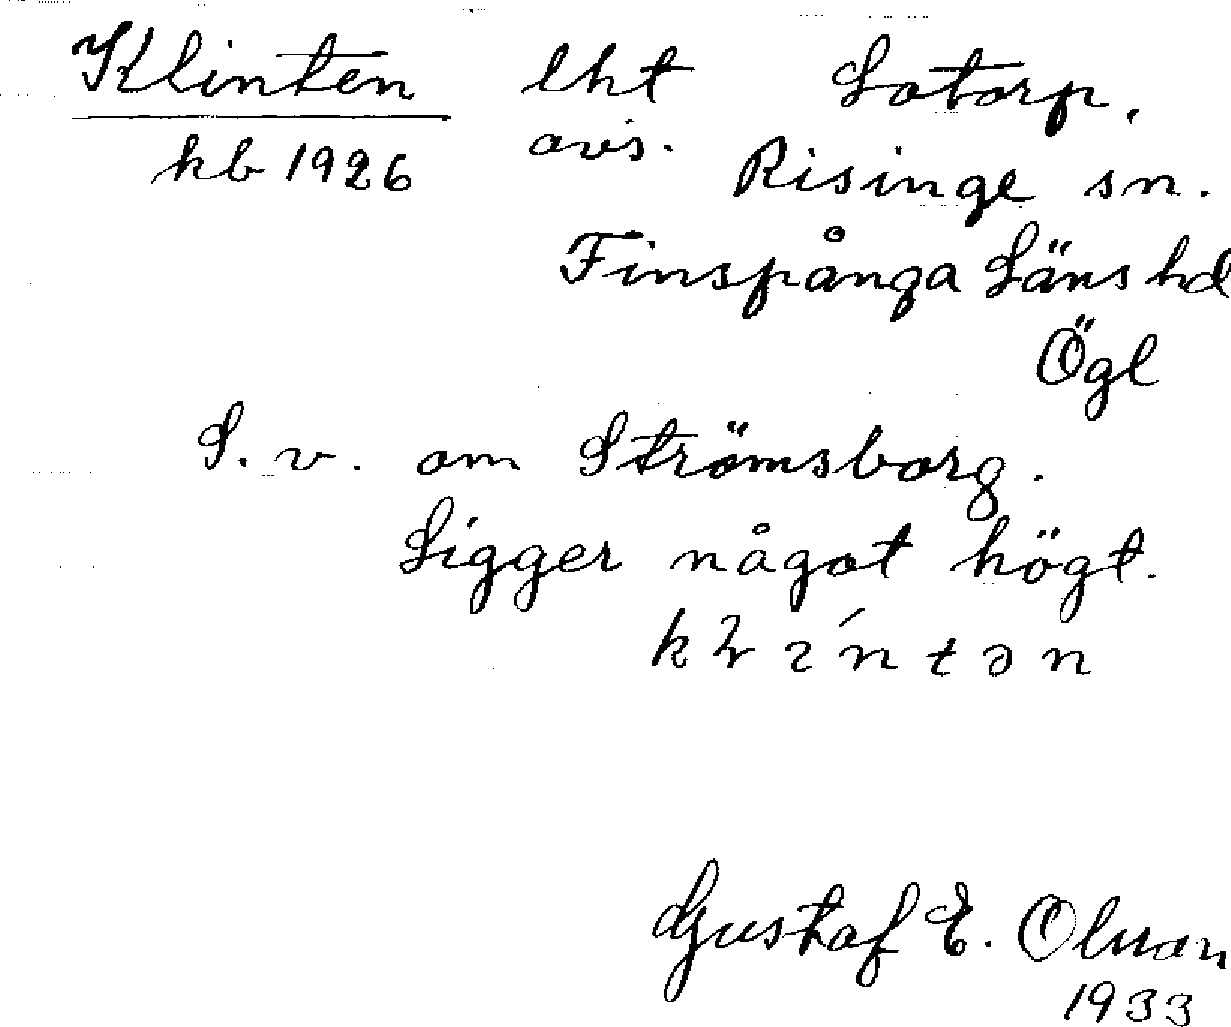 Klinten lht Lotorp,
kb 1926 avs. Risinge sn.
Finspånga Läns hd
Ögl
S. v. om Strömsborg.
Ligger något högt.
Gustaf E. Olsson
1933